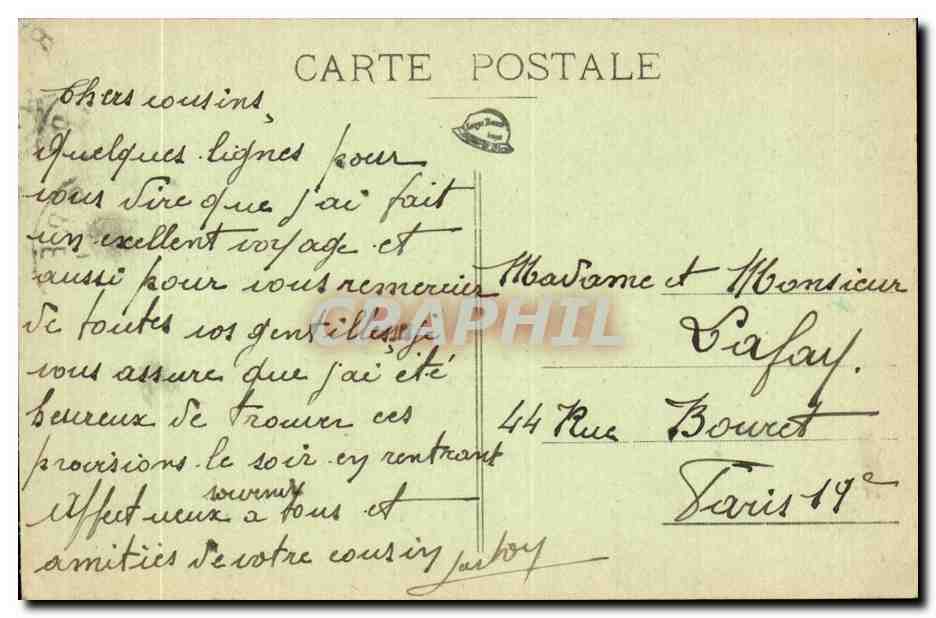 CARTE POSTALE
Chers cousins,
Quelques lignes pour
vous dire que j'ai fait
un exellent voyage et
aussi pour vous remercier
de toutes vos gentilles, je
vous assure que j'ai été
heureux de trouver ces
provisions le soir en rentrant
souvenir
Affectueux a tous et
amitiés de votre cousin
Madame et Monsieur
Lafay.
44 Rue Bouret
Paris 19e
CRAPHIL